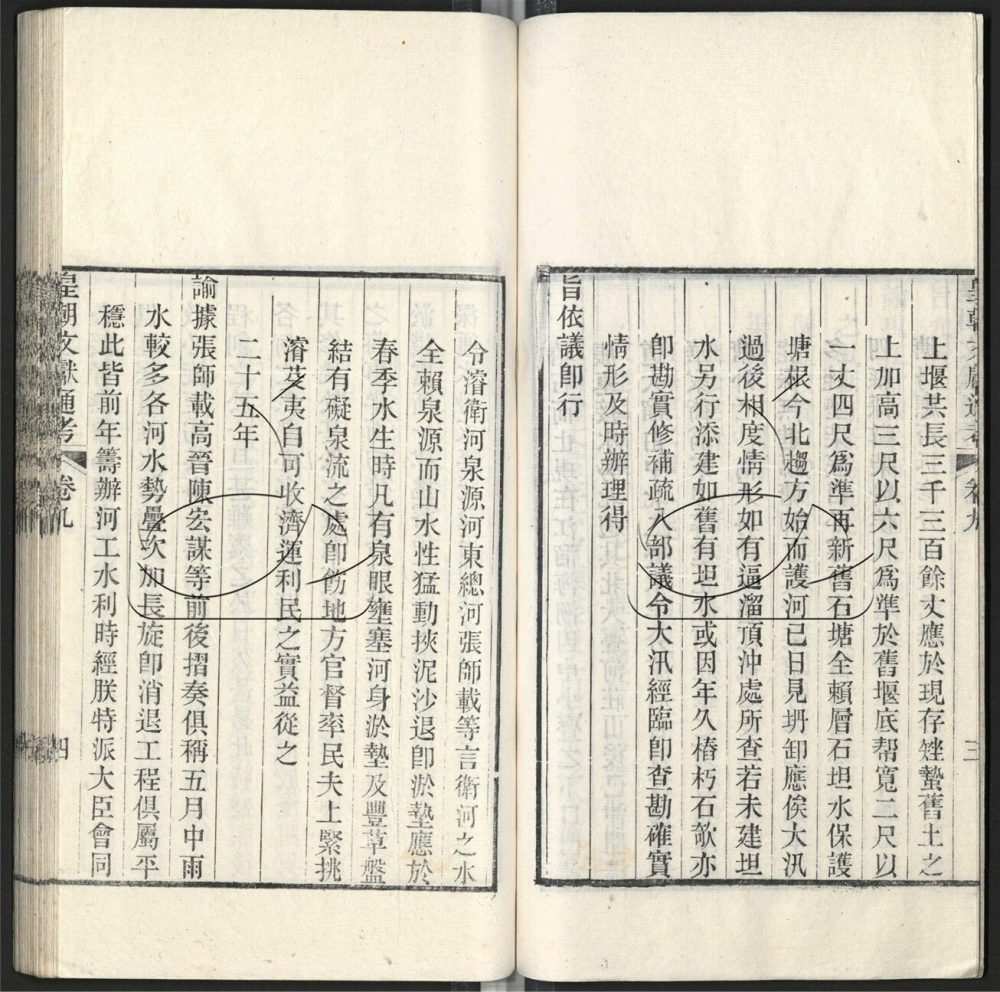 上堰共長三千三百餘丈應於現存矬蟄舊土之
上加高三尺以六尺爲準於舊堰底帮寬二尺以
一丈四尺爲準再新舊石塘全賴層石坦水保護
塘根今北趨方始而護河已日見坍卸應俟大汛
過後相度情形如有逼溜頂沖處所查若未建坦
水另行添建如舊有坦水或因年久樁朽石欹亦
卽勘實修補疏入部議令大汛經臨卽查勘確實
情形及時辦理得
旨依議卽行
令濬衛河泉源河東總河張師載等言衛河之水
全賴泉源而山水性猛動挾泥沙退卽淤墊應於
春季水生時凡有泉眼壅塞河身淤墊及豐草盤
結有礙泉流之處卽飭地方官督率民夫上緊挑
濬芟夷自可收濟運利民之實益從之
二十五年
諭據張師載高晉陳宏謀等前後摺奏俱稱五月中雨
水較多各河水勢疊次加長旋卽消退工程俱屬平
穩此皆前年籌辦河工水利時經朕特派大臣會同
皇朝文獻通考 卷九 四
皇朝文獻通考 卷九 三